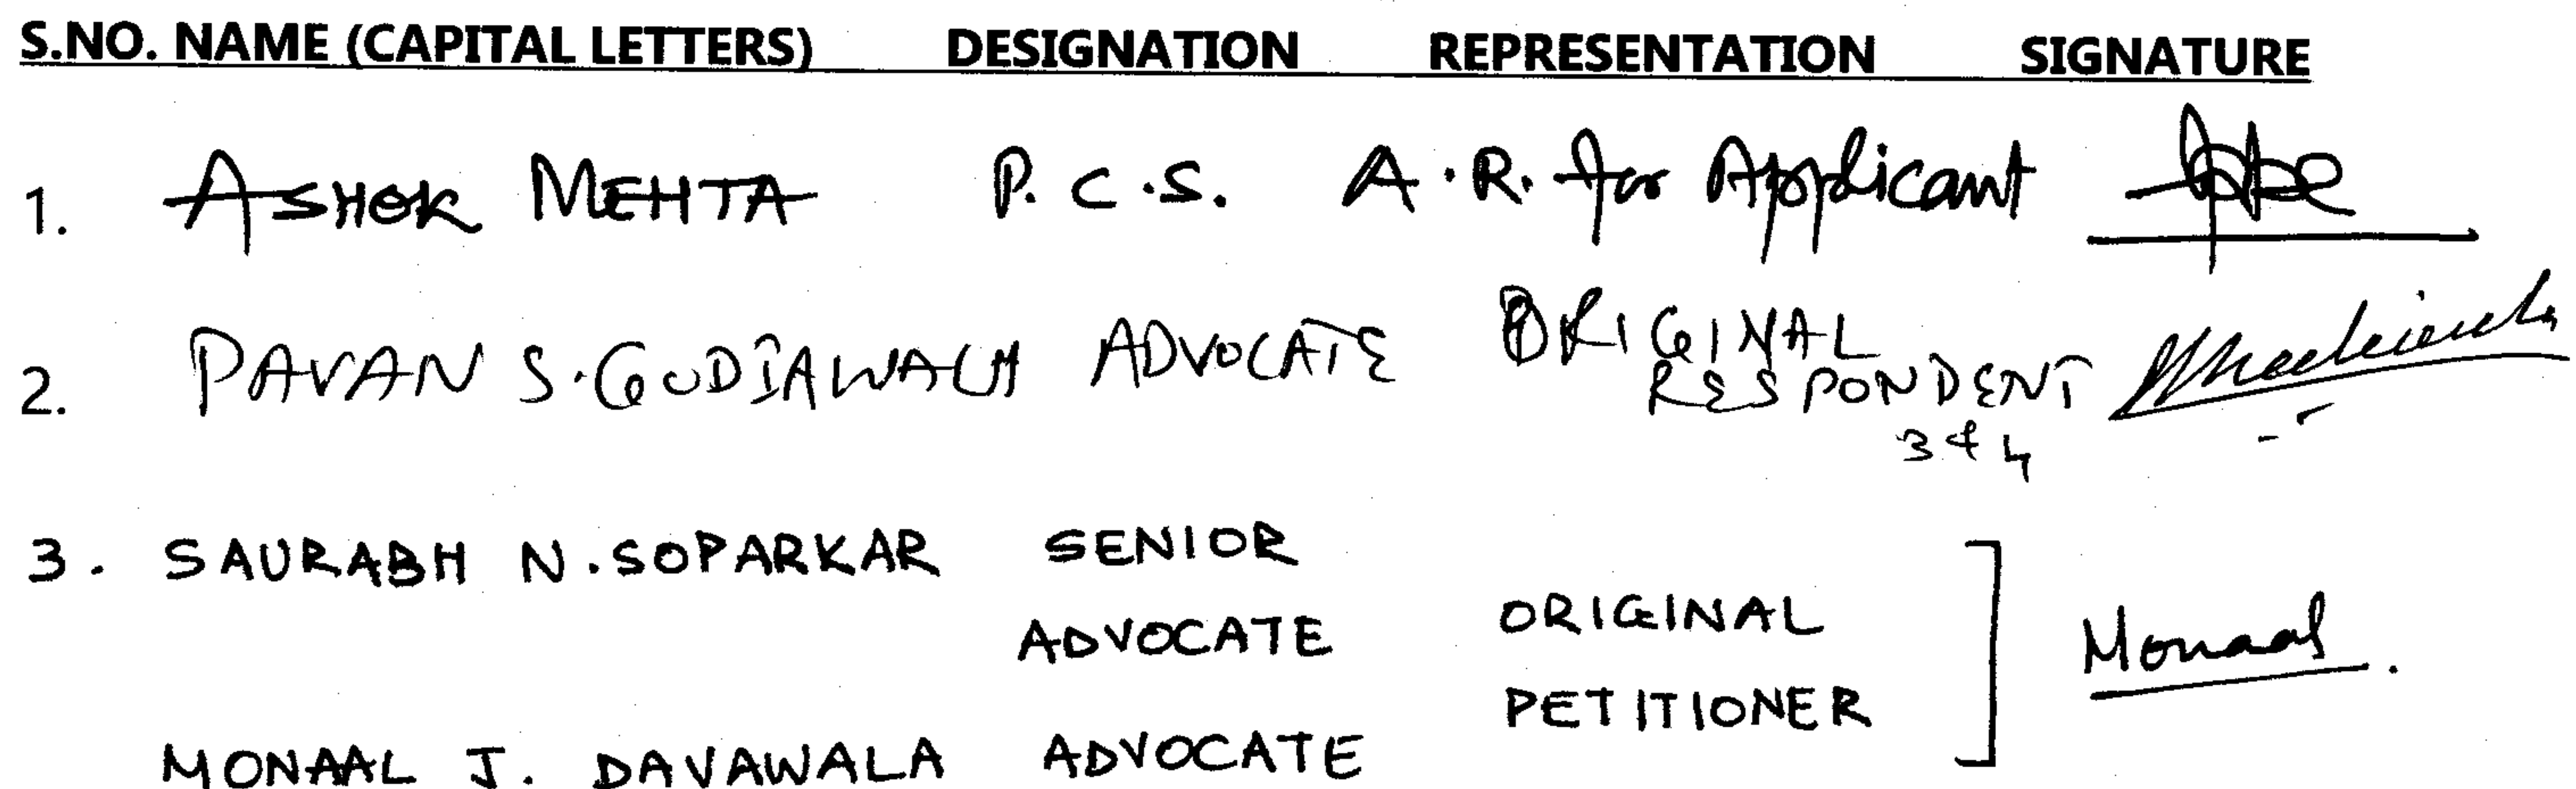 S.NO. NAME (CAPITAL LETTERS) DESIGNATION REPRESENTATION SIGNATURE
1. ASHOK MEHTA P.C.S. A.R. for Applicant
2. PAVAN S. GODIAWALA ADVOCATE ORIGINAL
RESPONDENT
3 & 4
3. SAURABH N. SOPARKAR SENIOR
ADVOCATE ORIGINAL
Monaal
PETITIONER
MONAAL J. DAVAWALA ADVOCATE